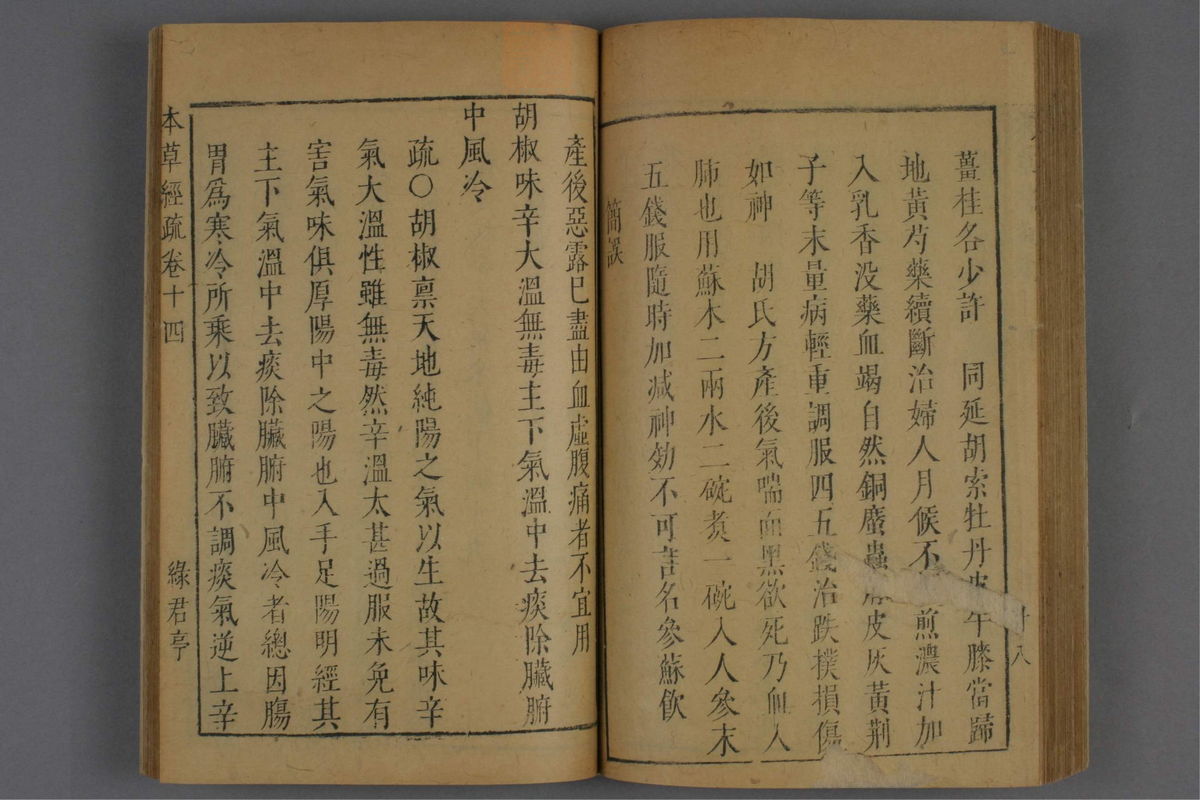 薑桂各少許　同延胡索牡丹皮牛膝當歸
地黃芍藥續斷治婦人月候不　煎濃汁加
入乳香没藥血竭自然銅䗪蟲　皮灰黃荆
子等末量病輕重調服四五錢治跌撲損傷
如神　胡氏方產後氣喘面黑欲死乃血入
肺也用蘇木二兩水二碗煑一碗入人參末
五錢服隨時加减神効不可言名參蘇飲
簡誤
十八
產後惡露已盡由血虛腹痛者不宜用
胡椒味辛大溫無毒主下氣溫中去痰除臟腑
中風冷
疏〇胡椒禀天地純陽之氣以生故其味辛
氣大溫性雖無毒然辛溫太甚過服未免有
害氣味俱厚陽中之陽也入手足陽明經其
主下氣溫中去痰除臟腑中風冷者總因腸
胃爲寒冷所乘以致臟腑不調痰氣逆上辛
本草經疏卷十四
綠君亭